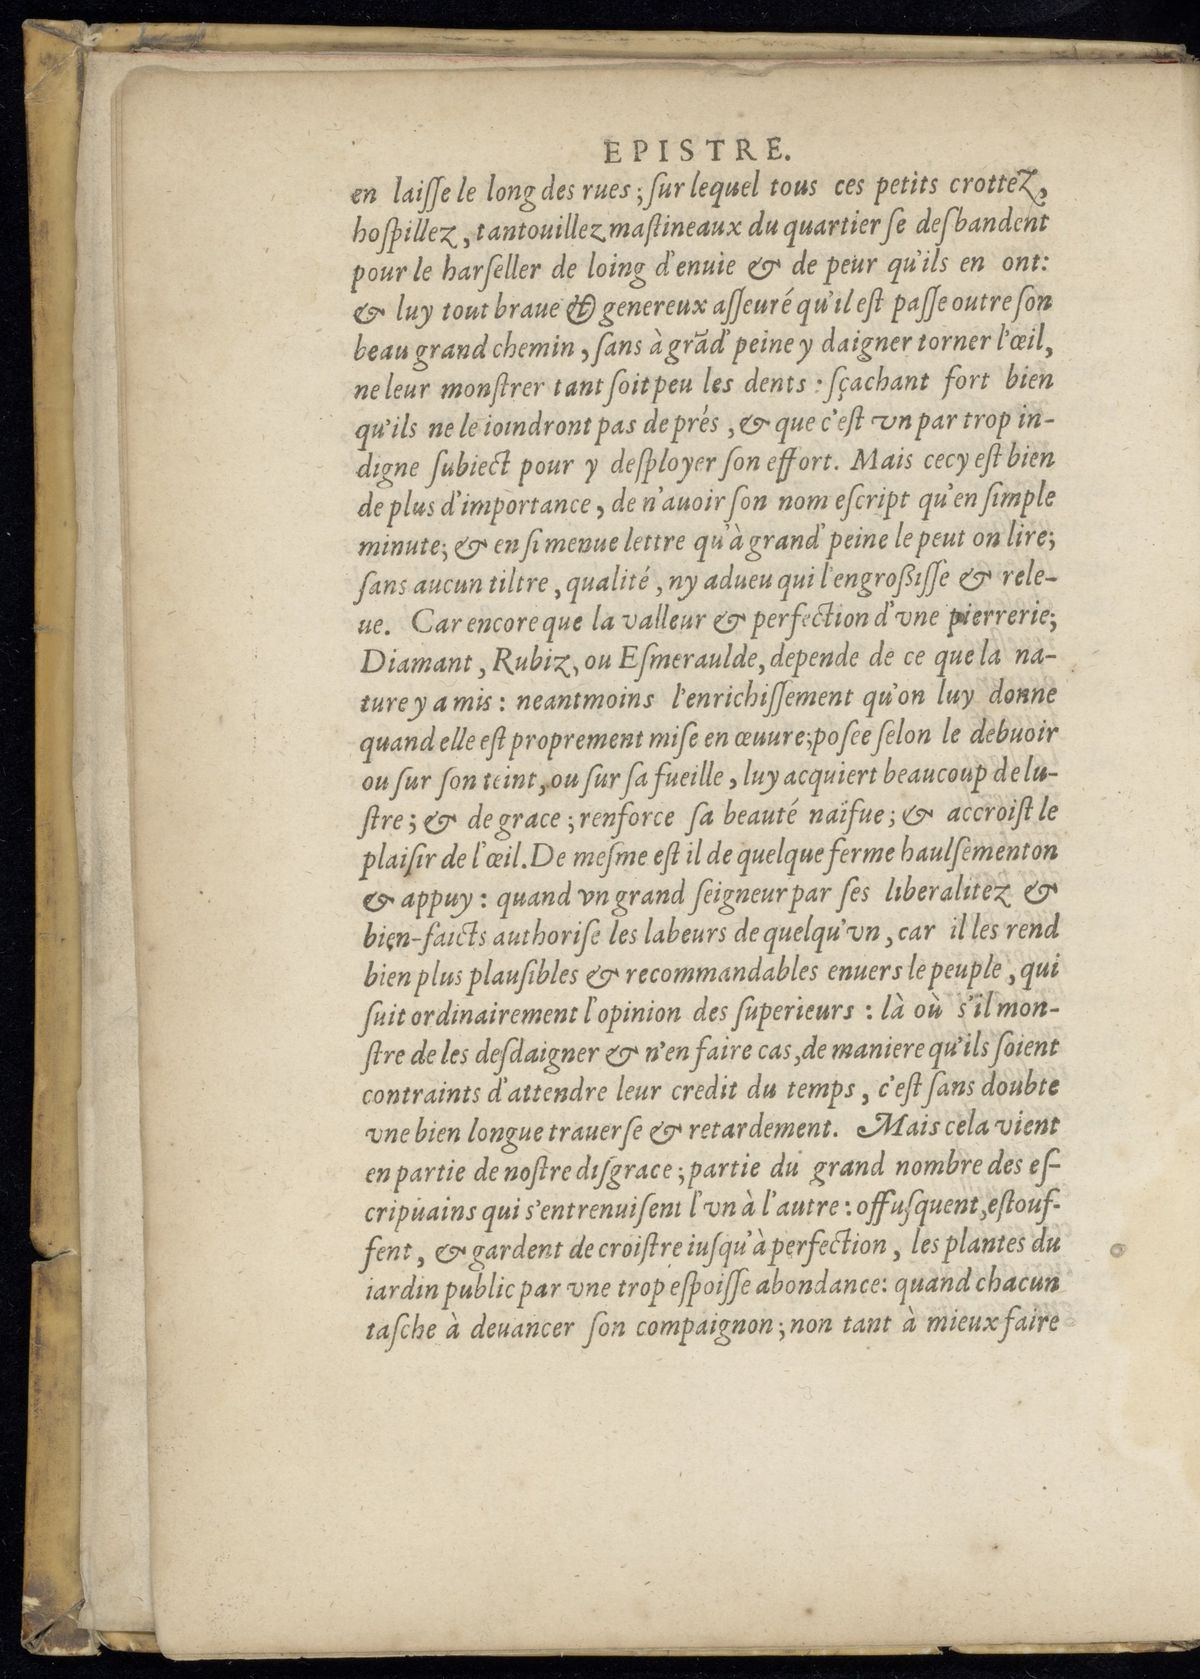 EPISTRE.
en laiſſe le long des rues ; ſur lequel tous ces petits crottez,
hoſpillez, tantouillez maſtineaux du quartier ſe deſbandent
pour le harſeller de loing d'enuie & de peur qu'ils en ont:
& luy tout braue & genereux aſſeuré qu'il eſt paſſe outre ſon
beau grand chemin, ſans à grãd' peine y daigner torner l'œil,
ne leur monſtrer tant ſoit peu les dents : ſçachant fort bien
qu'ils ne le ioindront pas de prés, & que c'eſt vn par trop in-
digne ſubiect pour y deſployer ſon effort. Mais cecy eſt bien
de plus d'importance, de n'auoir ſon nom eſcript qu'en ſimple
minute; & en ſi menue lettre qu'à grand' peine le peut on lire;
ſans aucun tiltre, qualité, ny adueu qui l'engroßiſſe & rele-
ue. Car encore que la valleur & perfection d'vne pierrerie;
Diamant, Rubiz, ou Eſmeraulde, depende de ce que la na-
ture y a mis : neantmoins l'enrichiſſement qu'on luy donne
quand elle eſt proprement miſe en œuure; poſee ſelon le debuoir
ou ſur ſon teint, ou ſur ſa fueille, luy acquiert beaucoup de lu-
ſtre ; & de grace ; renforce ſa beauté naïfue ; & accroiſt le
plaiſir de l'œil. De meſme eſt il de quelque ferme haulſementon
& appuy : quand vn grand ſeigneur par ſes liberalitez &
bien-faicts authoriſe les labeurs de quelqu'vn, car il les rend
bien plus plauſibles & recommandables enuers le peuple, qui
ſuit ordinairement l'opinion des ſuperieurs : là où s'il mon-
ſtre de les deſdaigner & n'en faire cas, de maniere qu'ils ſoient
contraints d'attendre leur credit du temps, c'eſt ſans doubte
vne bien longue trauerſe & retardement. Mais cela vient
en partie de noſtre diſgrace ; partie du grand nombre des eſ-
cripuains qui s'entrenuiſent l'vn à l'autre : offuſquent, eſtouf-
fent, & gardent de croiſtre iuſqu'à perfection, les plantes du
iardin public par vne trop eſpoiſſe abondance: quand chacun
taſche à deuancer ſon compaignon ; non tant à mieux faire